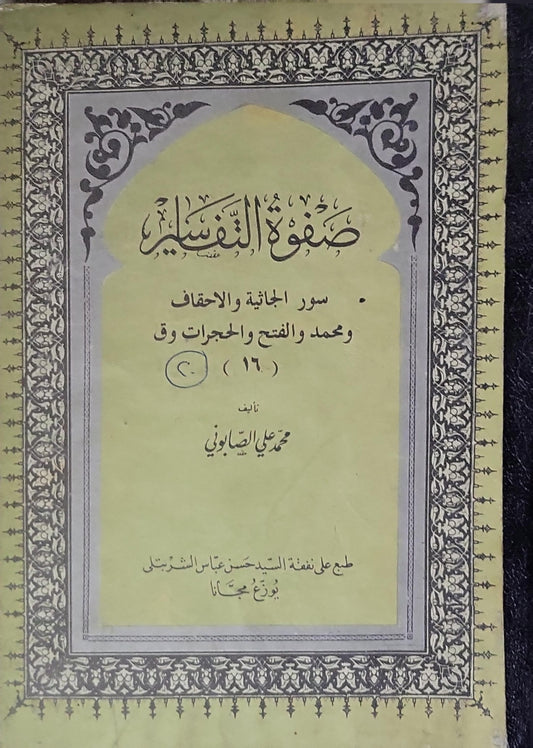 صَفْوَةُ التَّفَاسِير
سور الجاثية والاحقاف
ومحمد والفتح والحجرات وق
( ١٦ ) ٢٠
تأليف
محمّد علي الصّابوني
طبع على نفقة السيّد حسن عبّاس الشربتلى
يُوزّع مجَّانا